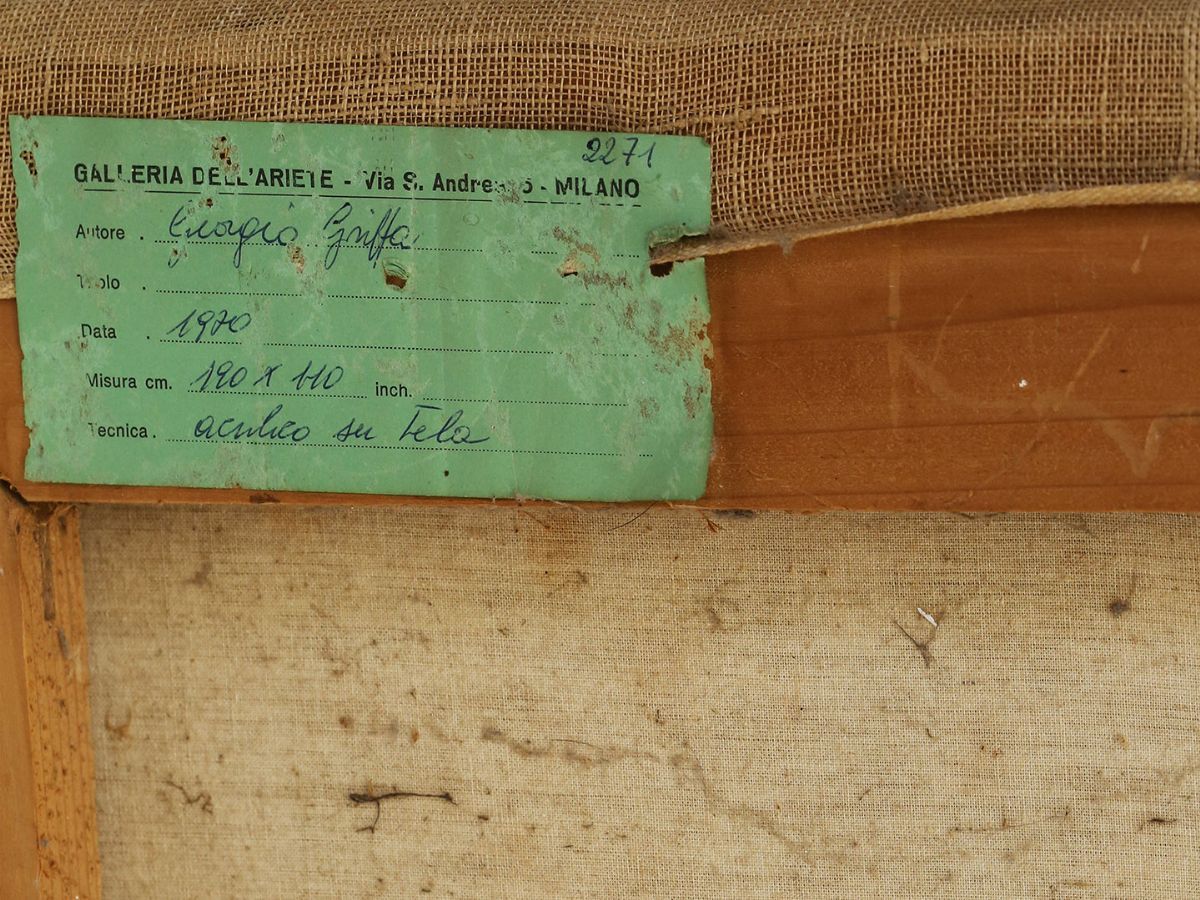 2271
GALLERIA DELL'ARIETE - Via S. Andrea 5 - MILANO
Autore . Giorgio Griffa
Titolo .
Data . 1970
Misura cm. 190 X 110 inch.
Tecnica . acrilico su tela